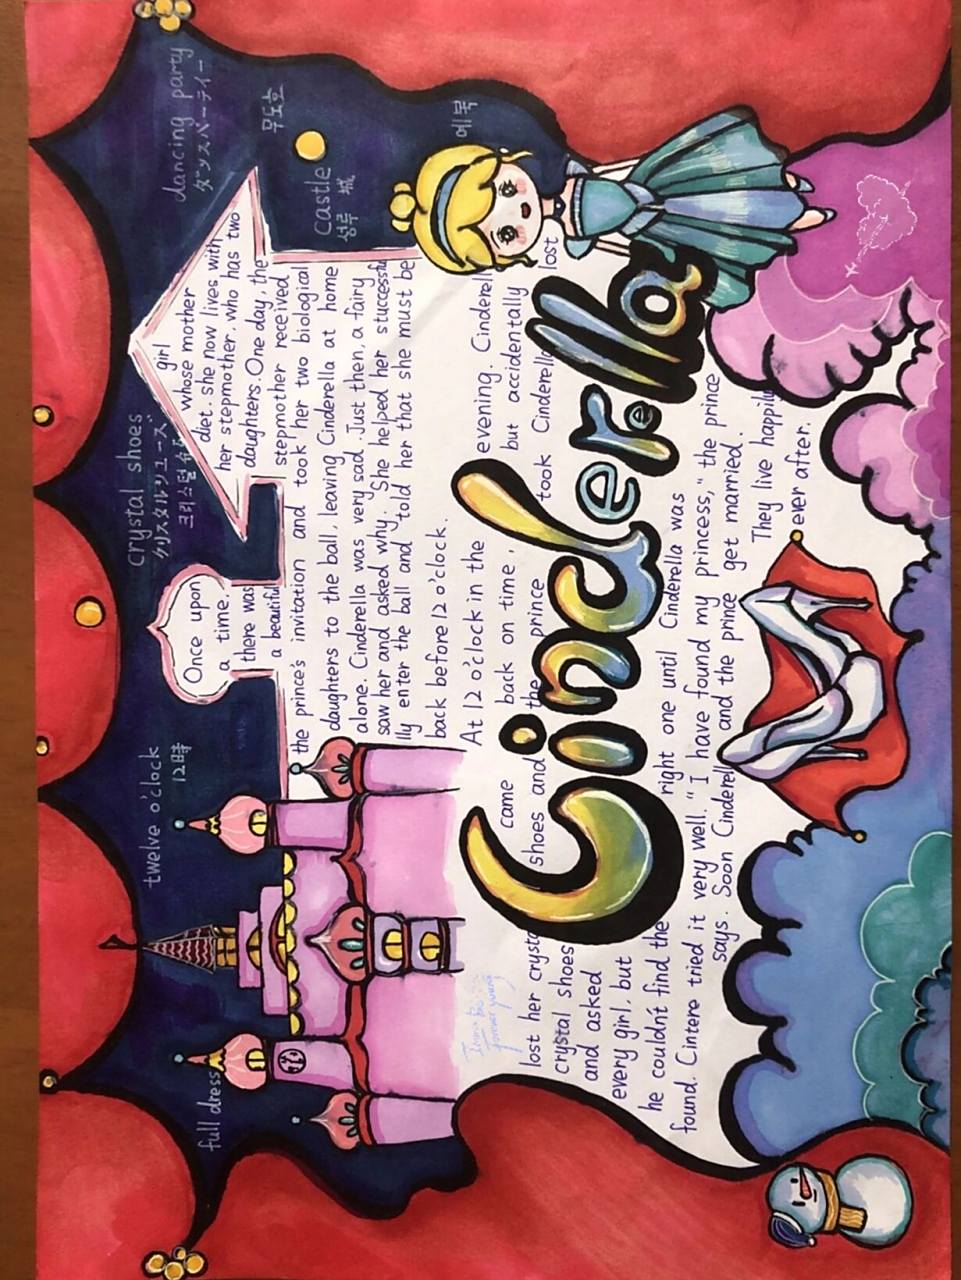 full dress
twelve o'clock
12時
crystal shoes
クリスタルシューズ
dancing party
ダンスパーティー
무도호
castle
성루 城
예복
Once upon
a time,
there was
a beautiful
girl
whose mother
diet. she now lives with
her stepmother, who has two
daughters. One day, the
stepmother received
the prince's invitation and took her two biological
daughters to the ball, leaving Cinderella at home
alone. Cinderella was very sad. Just then, a fairy
saw her and asked why. She helped her successfu
lly enter the ball and told her that she must be
back before 12 o'clock.
At 12 o'clock in the evening. Cinderell
came back on time, but accidentally lost
shoes and the prince took Cinderella
lost her crysta
crystal shoes
and asked
every girl, but
he couldn't find the right one until Cinderella was
found. Cintere tried it very well. "I have found my princess," the prince
says. Soon Cinderella and the prince get married.
They live happily
ever after.
Cinderella
Forever young